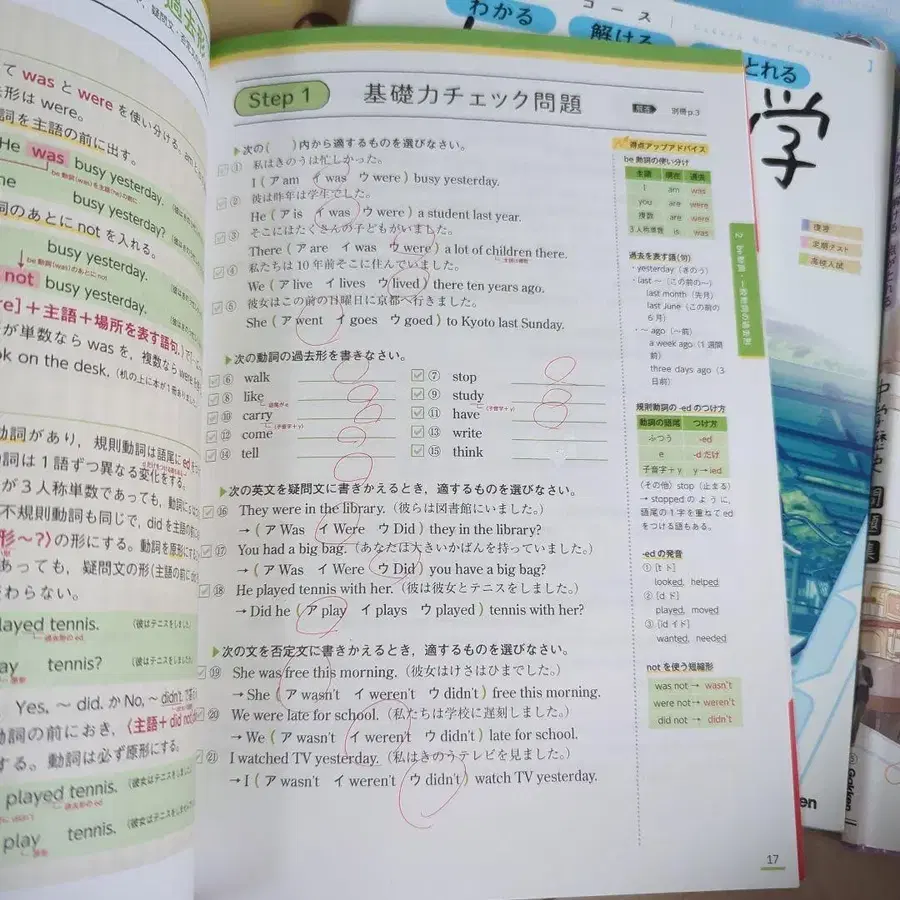 わかる
コース
解ける
とれる
学
復習
定期テスト
高校入試
過去形
疑問文・否定文
て was と were を使い分ける。
形は were。
詞を主語の前に出す。
He was busy yesterday.
be 動詞(was)を主語(he)の前に
he busy yesterday?
詞のあとに not を入れる。
busy yesterday.
be 動詞(was)のあとに not
not busy yesterday.
re]+主語+場所を表す語句.〉
が単数なら was を，複数なら were
ok on the desk. (机の上に本が1冊ありました。)
動詞があり，規則動詞は語尾に ed
動詞は1語ずつ異なる変化をする。
が3人称単数であっても，動詞に
不規則動詞も同じで，did を主語の前
形〜?〉の形にする。動詞を原形にする
あっても，疑問文の形
わらない。
layed tennis. (彼はテニスをしました。)
過去形の ed
ay tennis? (彼はテニスをしましたか。)
原形
Yes, 〜 did. か No, 〜 didn't.
動詞の前におき，〈主語+did not
する。動詞は必ず原形にする。
played tennis. (彼女はテニスをしました。)
過去形の ed
play tennis. (彼女はテニスをしませんでした。)
原形
Step 1 基礎力チェック問題 解答 別冊p.3
▶次の( )内から適するものを選びなさい。
① 私はきのうは忙しかった。
I ( ア am イ was ウ were ) busy yesterday.
② 彼は昨年は学生でした。
He ( ア is イ was ウ were ) a student last year.
③ そこにはたくさんの子どもがいました。
There ( ア are イ was ウ were ) a lot of children there.
主語は複数
④ 私たちは10年前そこに住んでいました。
We ( ア live イ lives ウ lived ) there ten years ago.
⑤ 彼女はこの前の日曜日に京都へ行きました。
She ( ア went イ goes ウ goed ) to Kyoto last Sunday.
▶次の動詞の過去形を書きなさい。
⑥ walk ⑦ stop
⑧ like ⑨ study
語尾が e (子音字+y)
⑩ carry ⑪ have
(子音字+y)
⑫ come ⑬ write
⑭ tell ⑮ think
▶次の英文を疑問文に書きかえるとき，適するものを選びなさい。
⑯ They were in the library. （彼らは図書館にいました。）
→ ( ア Was イ Were ウ Did ) they in the library?
⑰ You had a big bag. （あなたは大きいかばんを持っていました。）
→ ( ア Was イ Were ウ Did ) you have a big bag?
⑱ He played tennis with her. （彼は彼女とテニスをしました。）
→ Did he ( ア play イ plays ウ played ) tennis with her?
▶次の文を否定文に書きかえるとき，適するものを選びなさい。
⑲ She was free this morning. （彼女はけさはひまでした。）
→ She ( ア wasn't イ weren't ウ didn't ) free this morning.
⑳ We were late for school. （私たちは学校に遅刻しました。）
→ We ( ア wasn't イ weren't ウ didn't ) late for school.
㉑ I watched TV yesterday. （私はきのうテレビを見ました。）
→ I ( ア wasn't イ weren't ウ didn't ) watch TV yesterday.
得点アップアドバイス
be 動詞の使い分け
主語 現在 過去
I am was
you are were
複数 are were
3人称単数 is was
過去を表す語(句)
・yesterday（きのう）
・last 〜（この前の〜）
last month（先月）
last June（この前の
6月）
・〜 ago（〜前）
a week ago（1週間
前）
three days ago（3
日前）
規則動詞の -ed のつけ方
動詞の語尾 つけ方
ふつう -ed
e -d だけ
子音字+y y→ied
（その他）stop（止まる）
→ stopped のように，
語尾の1字を重ねて ed
をつける語もある。
-ed の発音
① [t ト]
looked, helped
② [d ド]
played, moved
③ [id イド]
wanted, needed
not を使う短縮形
was not → wasn't
were not → weren't
did not → didn't
2 be 動詞・一般動詞の過去形
17
中学歴史
問題集
Gakken